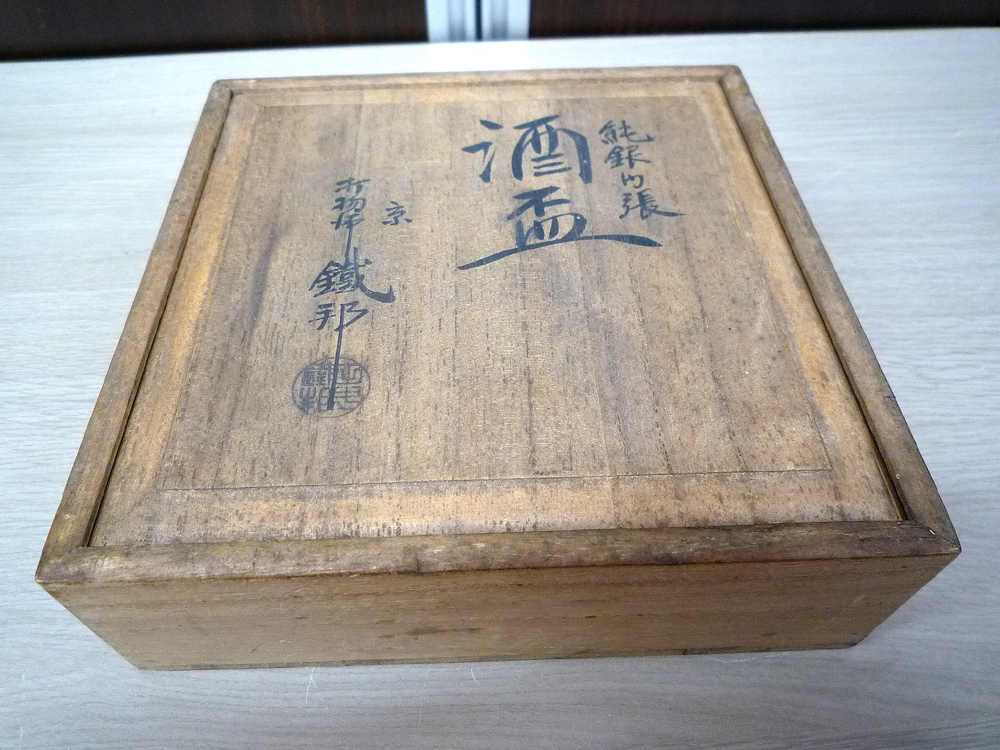 純銀内張
酒盃
京
打物師 鐵邦